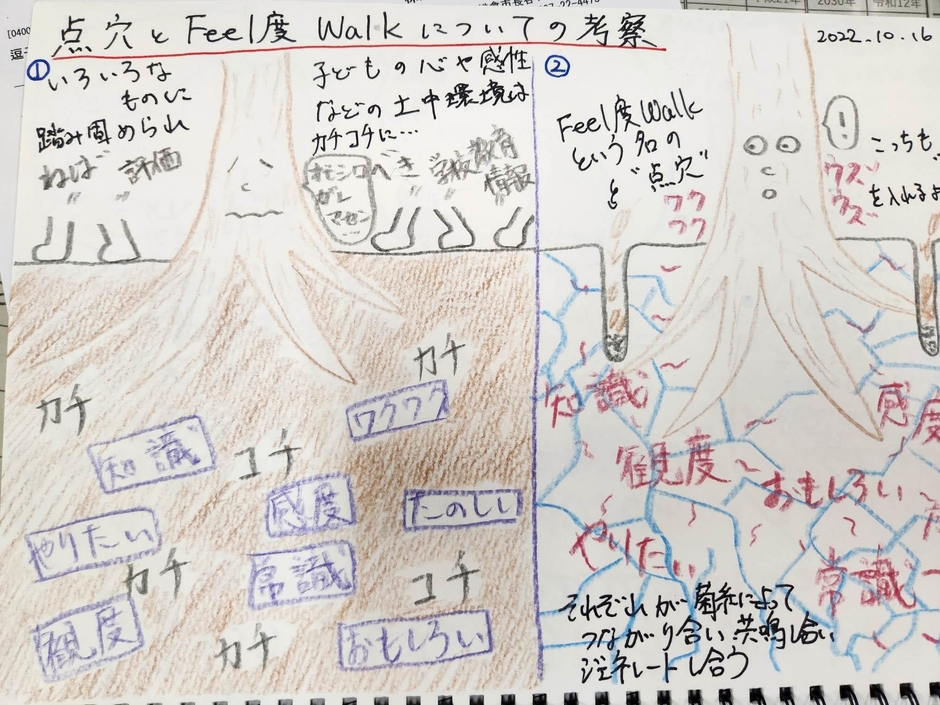 点穴とFeel度Walkについての考察
2022.10.16
①
いろいろな
ものに
踏み固められ
ねば 評価
〃 〃
子どもの心や感性
などの土中環境は
カチコチに…
オモシロ
ガレ
マセーン
べき 学校教育
〃 〃 情報
カチ
カチ
ワクワク
知識
コチ
感度
たのしい
やりたい
カチ
常識
コチ
観度
カチ
おもしろい
②
Feel度Walk
という名の
"点穴"
を
ワク
ワク
!
こっちも
ウズ
ウズ
を入れるよ
知識
感度
観度〜
おもしろい〜
やりたい
常識
それぞれが菌糸によって
つながり合い 共鳴し合い
ジェネレートし合う